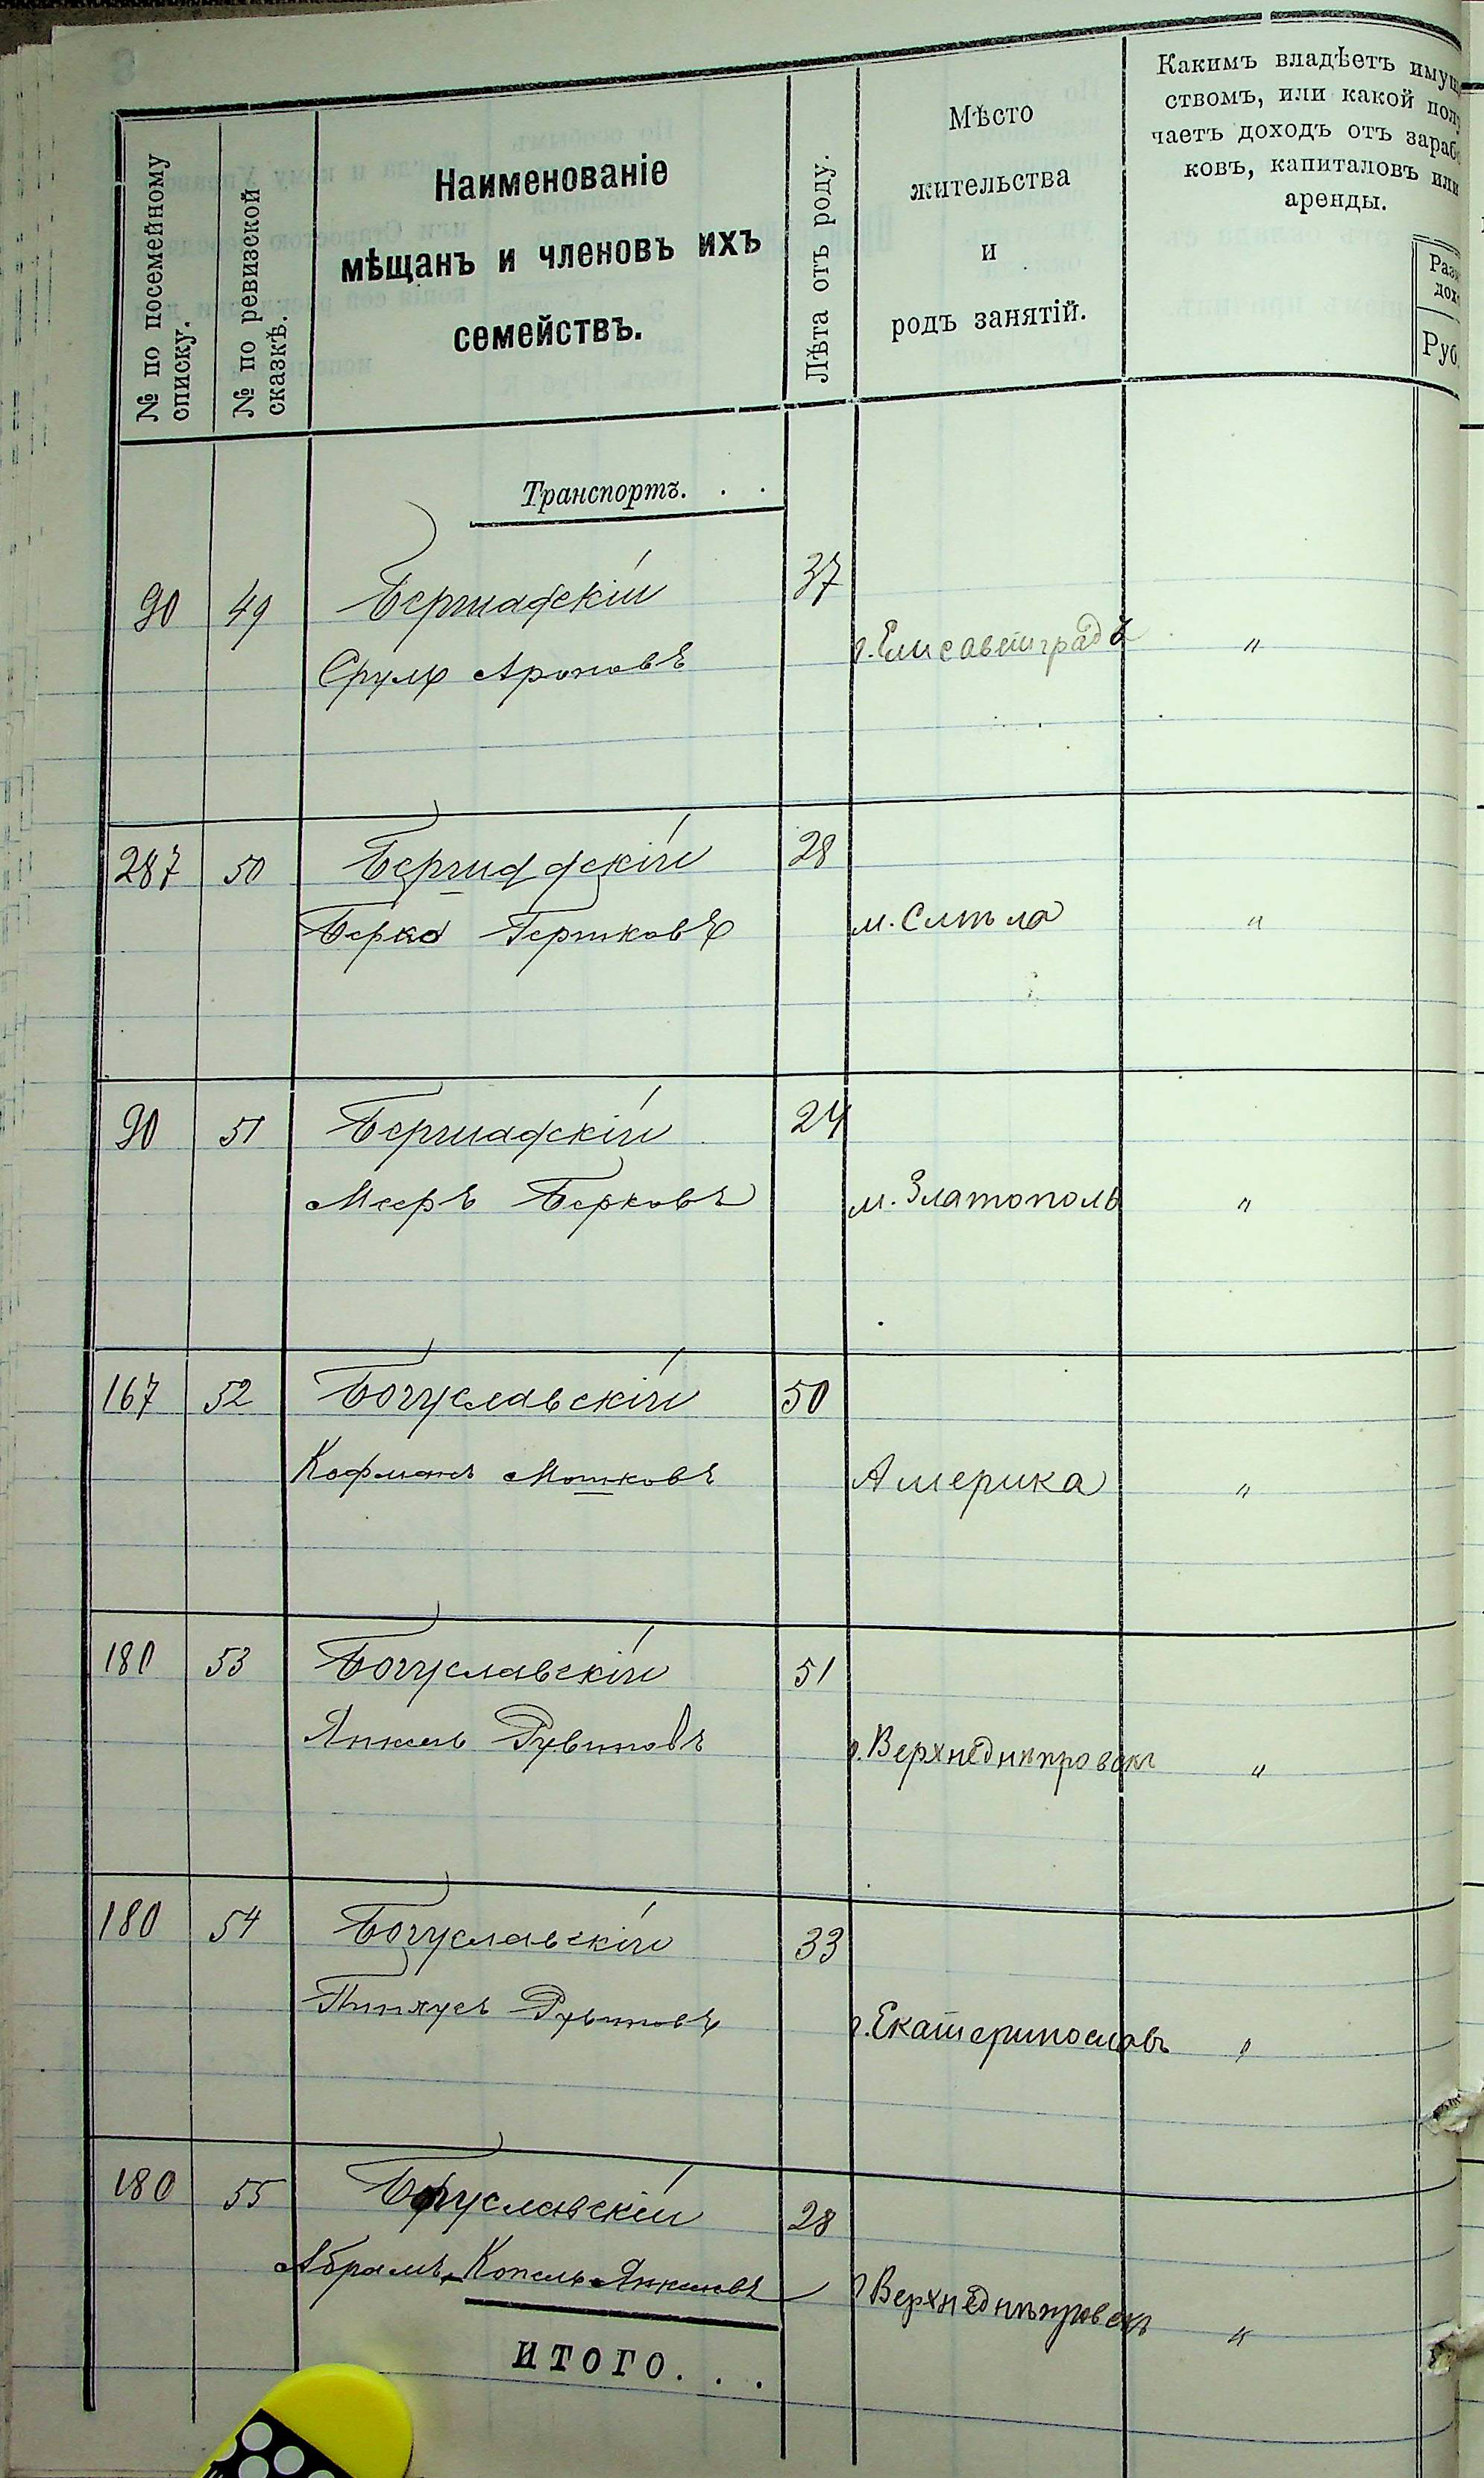 № по посемейному
списку.
№ по ревизской
сказкѣ.
Наименованіе
мѣщанъ и членовъ ихъ
семействъ.
Лѣта отъ роду.
Мѣсто
жительства
и
родъ занятій.
Какимъ владѣетъ имущ
ствомъ, или какой полу
чаетъ доходъ отъ зараб
ковъ, капиталовъ или
аренды.
Руб.
Транспортъ. . .
90 49 Бершадскій 37
Сруль Ароновъ г. Елисаветградъ "
287 50 Бершадскій 28
Берко Гершковъ м. Смѣла "
90 51 Бершадскій 24
Мееръ Берковъ м. Златополь "
167 52 Богуславскій 50
Кофманъ Мошковъ Америка "
180 53 Богуславскій 51
Янкель Рувиновъ г. Верхнеднѣпровскъ "
180 54 Богуславскій 33
Пинхусъ Рувиновъ г. Екатеринославъ "
180 55 Богуславскій 28
Абрамъ-Копель Янкелевъ г Верхнеднѣпровскъ "
ИТОГО. . .